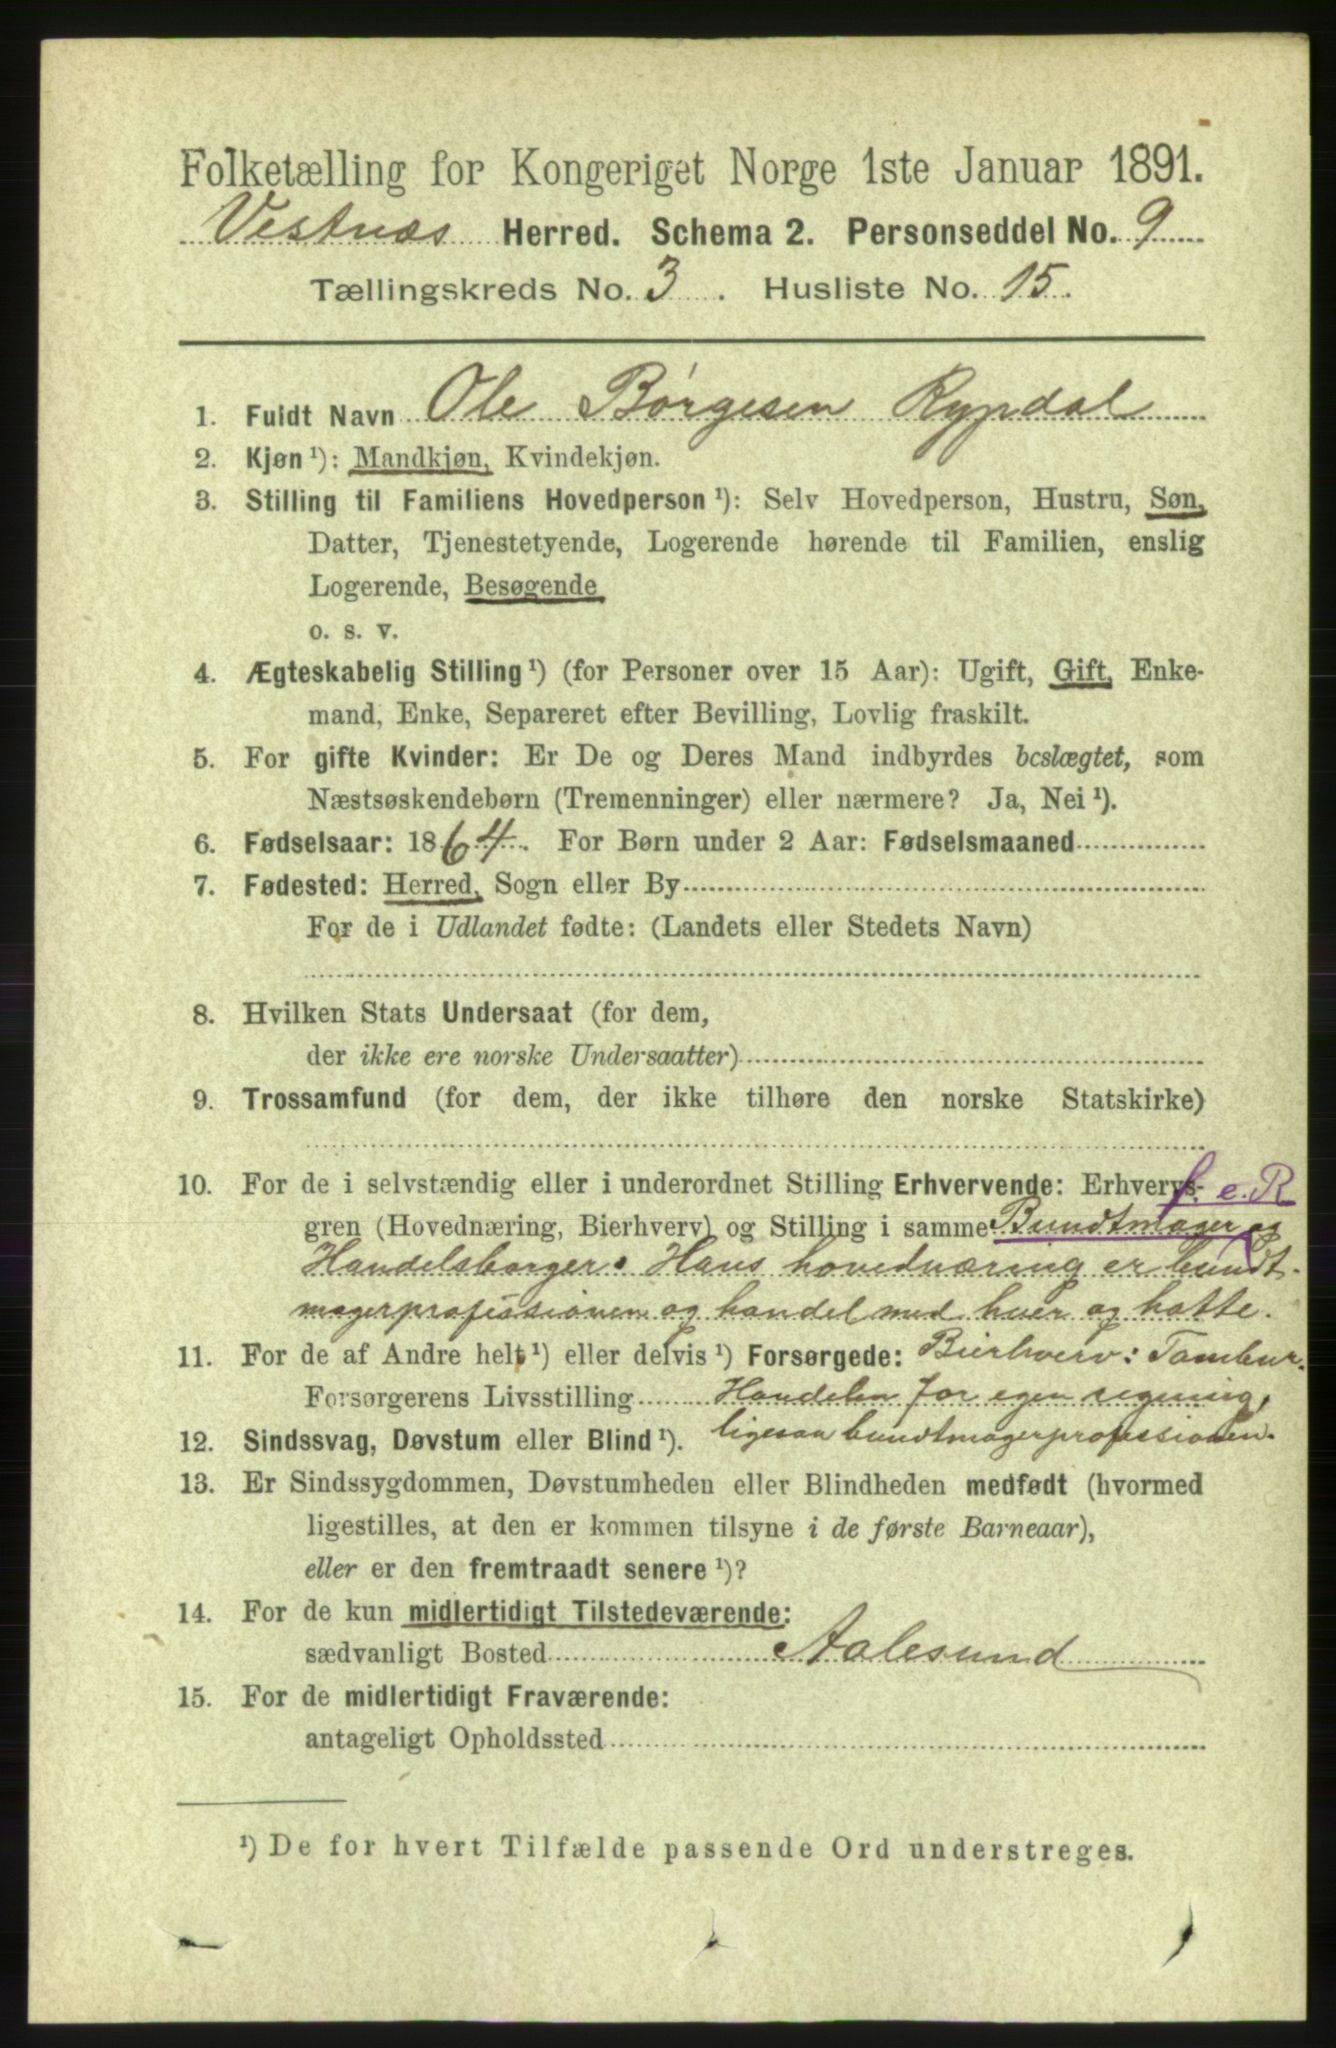 Folketælling for Kongeriget Norge 1ste Januar 1891.
Vestnæs Herred. Schema 2. Personseddel No. 9
Tællingskreds No. 3. Husliste No. 15.
1. Fuldt Navn Ole Børgesen Rypdal
2. Kjøn ¹): Mandkjøn, Kvindekjøn.
3. Stilling til Familiens Hovedperson ¹): Selv Hovedperson, Hustru, Søn,
Datter, Tjenestetyende, Logerende hørende til Familien, enslig
Logerende, Besøgende
o. s. v.
4. Ægteskabelig Stilling ¹) (for Personer over 15 Aar): Ugift, Gift, Enke-
mand, Enke, Separeret efter Bevilling, Lovlig fraskilt.
5. For gifte Kvinder: Er De og Deres Mand indbyrdes beslægtet, som
Næstsøskendebørn (Tremenninger) eller nærmere? Ja, Nei ¹).
6. Fødselsaar: 1864. For Børn under 2 Aar: Fødselsmaaned
7. Fødested: Herred, Sogn eller By
For de i Udlandet fødte: (Landets eller Stedets Navn)
8. Hvilken Stats Undersaat (for dem,
der ikke ere norske Undersaatter)
9. Trossamfund (for dem, der ikke tilhøre den norske Statskirke)
10. For de i selvstændig eller i underordnet Stilling Erhvervende: Erhvervs- f. e. R
gren (Hovednæring, Bierhverv) og Stilling i samme Bundtmager og
Handelsborger. Hans hovednæring er bundt-
magerprofessionen og handel med huer og hatte.
11. For de af Andre helt ¹) eller delvis ¹) Forsørgede: Bierhverv:
Forsørgerens Livsstilling Handelen for egen regning,
12. Sindssvag, Døvstum eller Blind ¹). ligesaa bundtmagerprofessionen.
13. Er Sindssygdommen, Døvstumheden eller Blindheden medfødt (hvormed
ligestilles, at den er kommen tilsyne i de første Barneaar),
eller er den fremtraadt senere ¹)?
14. For de kun midlertidigt Tilstedeværende:
sædvanligt Bosted Aalesund
15. For de midlertidigt Fraværende:
antageligt Opholdssted
¹) De for hvert Tilfælde passende Ord understreges.